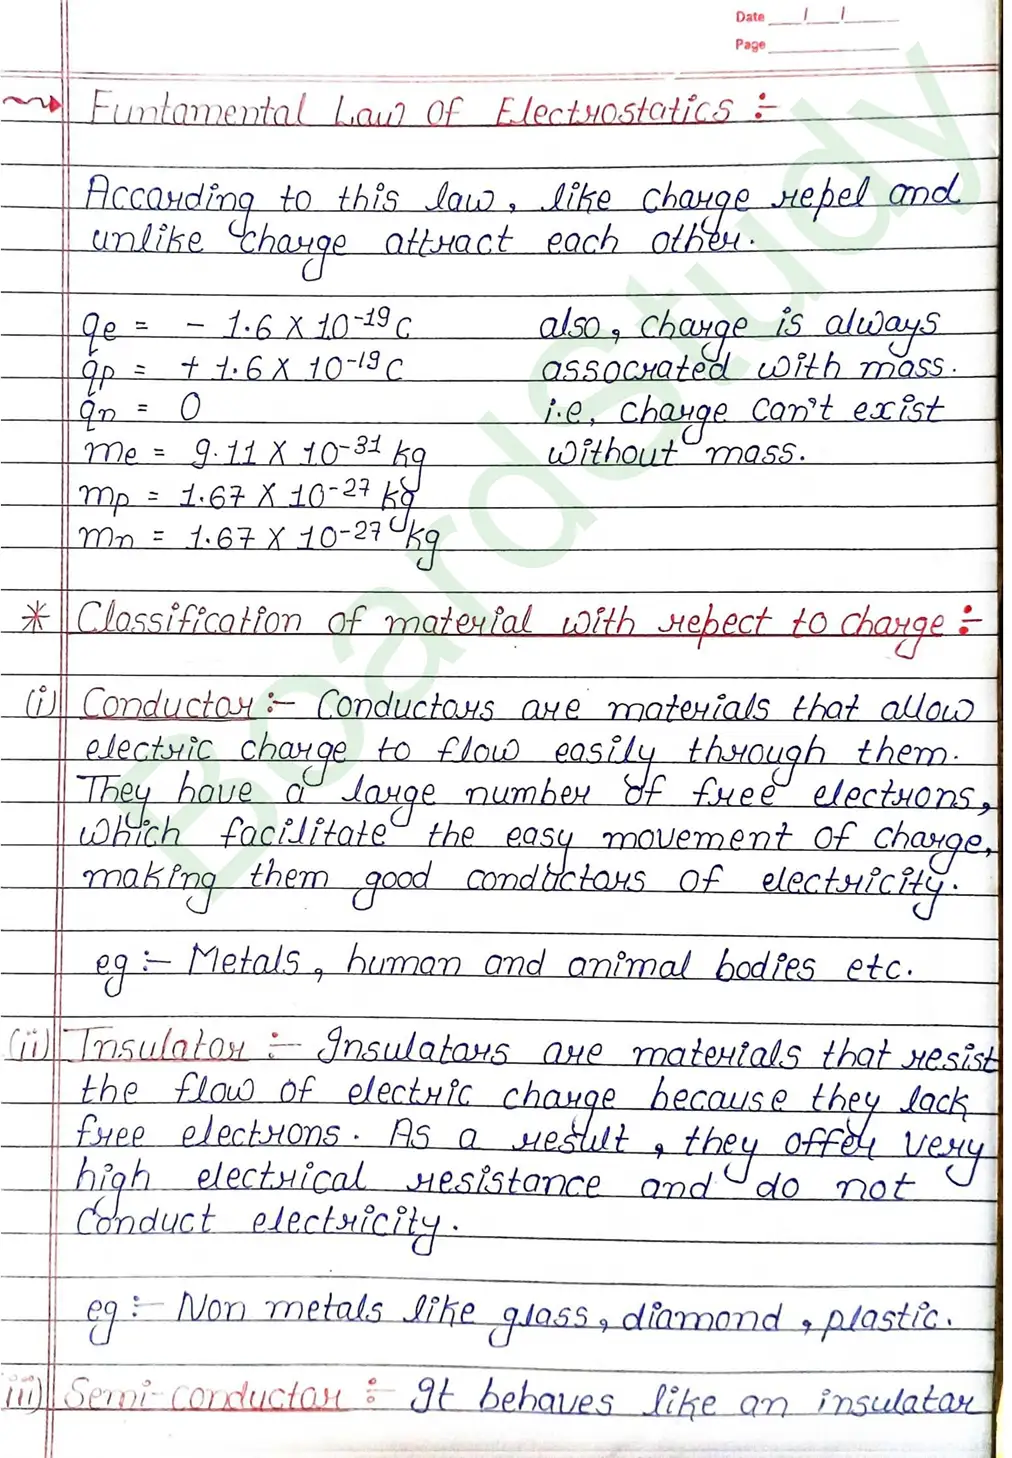 Date __/__/__
Page
Funtamental Law Of Electrostatics :-
According to this law, like charge repel and
unlike charge attract each other.
qe = - 1.6 X 10^-19 C
also, charge is always
qp = + 1.6 X 10^-19 C
assocrated with mass.
qn = 0
i.e, charge can't exist
me = 9.11 X 10^-31 kg
without mass.
mp = 1.67 X 10^-27 kg
mn = 1.67 X 10^-27 kg
* Classification of material with repect to charge :-
(i) Conductor :- Conductors are materials that allow
electric charge to flow easily through them.
They have a large number of free electrons,
which facilitate the easy movement of charge,
making them good conductors of electricity.
eg :- Metals, human and animal bodies etc.
(ii) Insulator :- Insulators are materials that resist
the flow of electric charge because they lack
free electrons. As a result, they offer very
high electrical resistance and do not
conduct electricity.
eg :- Non metals like glass, diamond, plastic.
iii) Semi-conductor :- It behaves like an insulator
Boardstudy